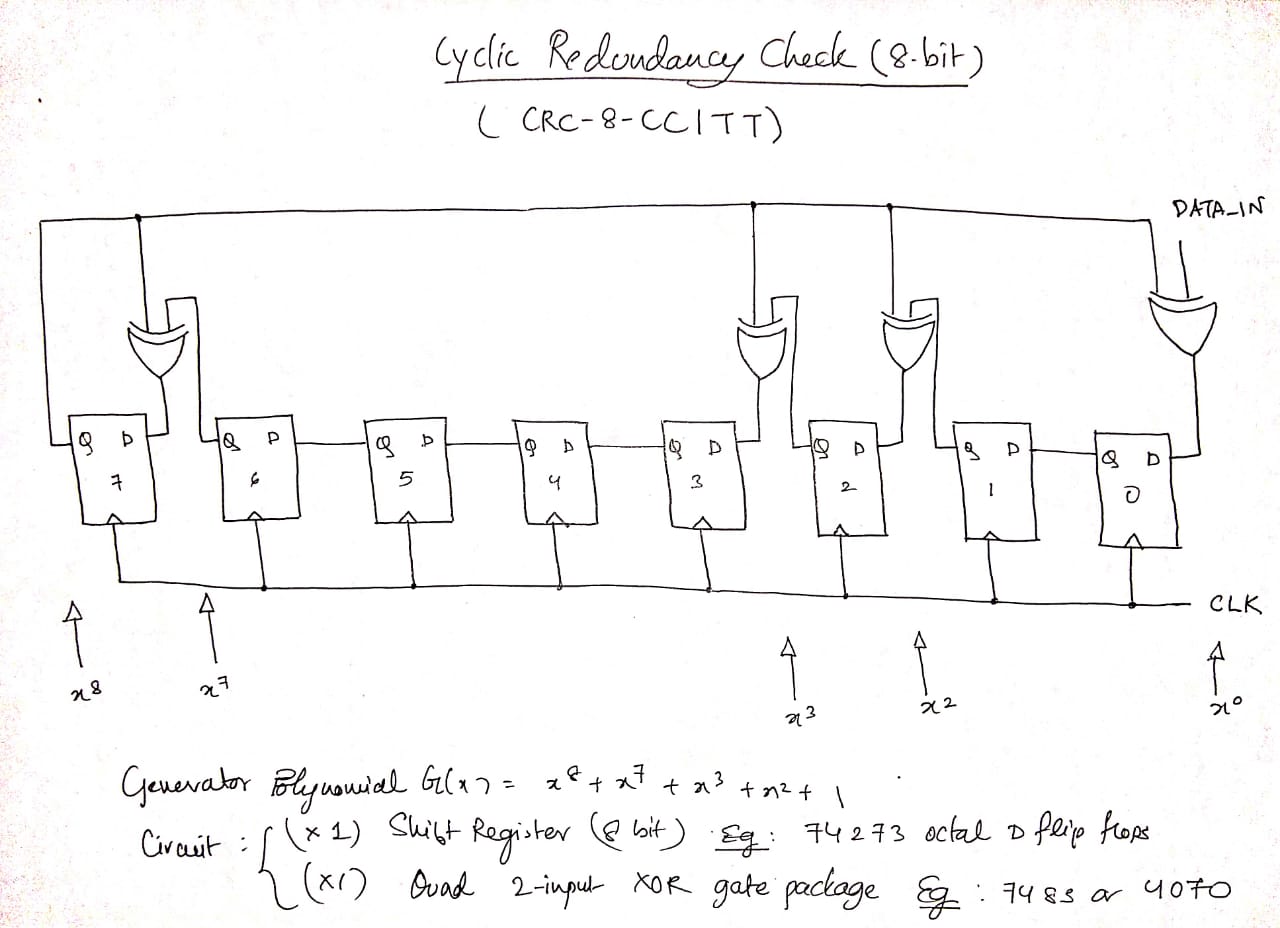 Cyclic Redundancy Check (8-bit)
( CRC-8-CCITT)
DATA_IN
Q D Q D Q D Q D Q D Q D Q D Q D
7 6 5 4 3 2 1 0
CLK
x⁸ x⁷ x³ x² x⁰
Generator Polynomial G(x) = x⁸ + x⁷ + x³ + x² + 1
Circuit : { (x 1) Shift Register (8 bit) Eg : 74273 octal D flip flops
(x1) Quad 2-input XOR gate package Eg : 7485 or 4070